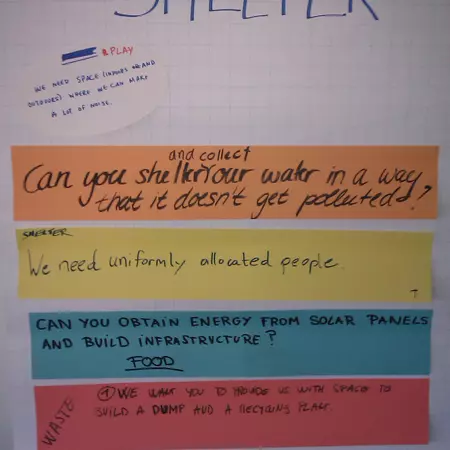 SHELTER
& PLAY
WE NEED SPACE (INDOORS OR AND
OUTDOORS) WHERE WE CAN MAKE
A LOT OF NOISE.
and collect
Can you shelter our water in a way
that it doesn't get polluted?
SHELTER
We need uniformly allocated people.
T
CAN YOU OBTAIN ENERGY FROM SOLAR PANELS
AND BUILD INFRASTRUCTURE?
FOOD
WASTE
① WE WANT YOU TO PROVIDE US WITH SPACE TO
BUILD A DUMP AND A RECYCLING PLANT.